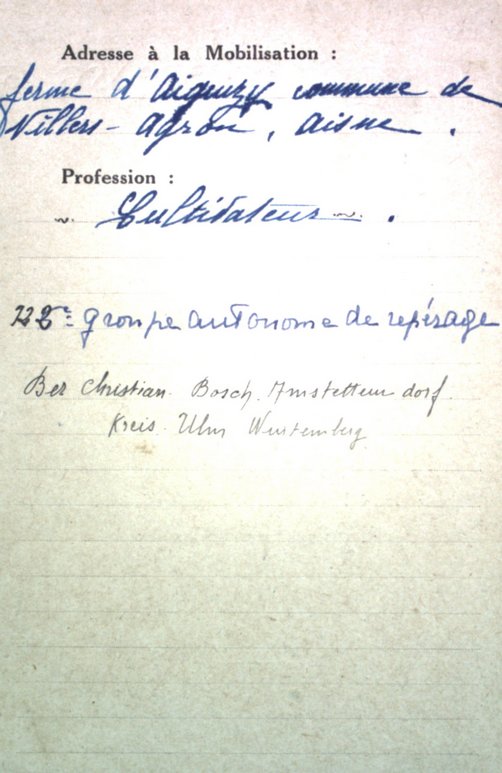 Adresse à la Mobilisation :
ferme d'Aiguizy commune de
Villers-Agron, Aisne.
Profession :
~ Cultivateur ~.
222e groupe autonome de repérage
Ber Christian Bosch. Amstetten dorf
Kreis Ulm Wurtemberg